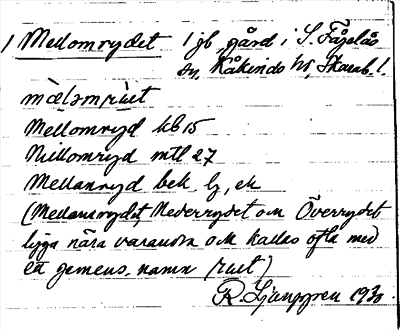 1 Mellomrydet 1 jb, gård i S. Fågelås
sn, Kåkinds hd, Skarab. l.
mælsomrùet
Mellomryd kb 15
Millomryd mtl 27
Mellanryd bek lz, ek
(Mellanrydet, Nederrydet och Överrydet
ligga nära varandra och kallas ofta med
ett gemens. namn rùet)
R. Ljunggren 1930.